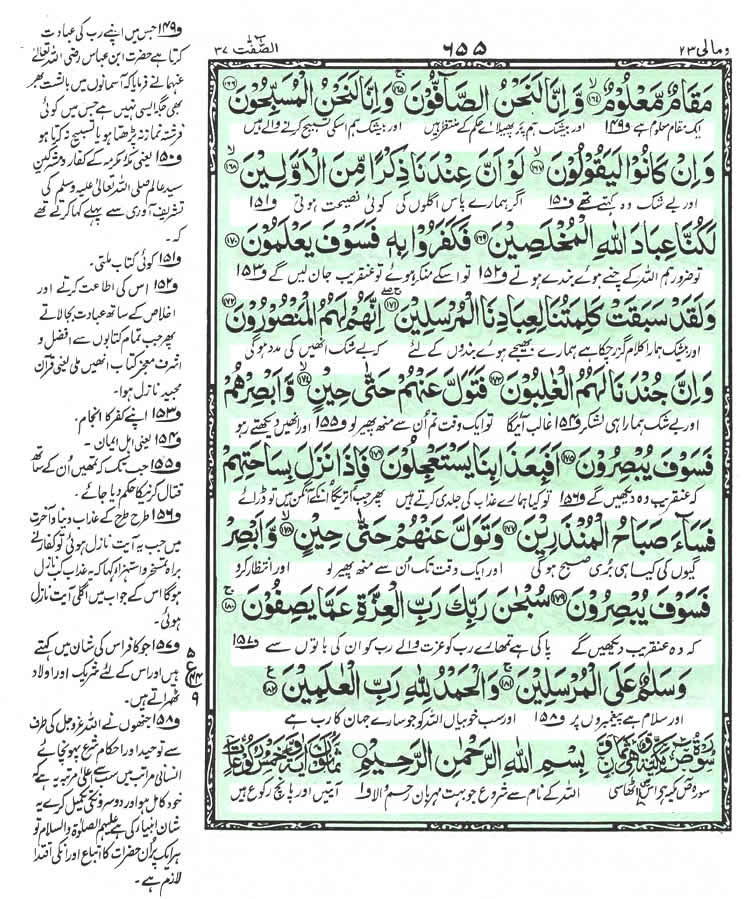 ومالی ۲۳
۶۵۵
الصّٰفّٰت ۳۷
مَقَامٌ مَّعْلُوْمٌ ﴿۱۶۴﴾ وَّ اِنَّا لَنَحْنُ الصَّآفُّوْنَ ﴿۱۶۵﴾ وَ اِنَّا لَنَحْنُ الْمُسَبِّحُوْنَ ﴿۱۶۶﴾
ایک مقام معلوم ہے و۱۴۹ اور بیشک ہم پر پھیلائے حکم کے منتظر ہیں اور بیشک ہم اسکی تسبیح کرنے والے ہیں
وَ اِنْ كَانُوْا لَيَقُوْلُوْنَ ﴿۱۶۷﴾ لَوْ اَنَّ عِنْدَنَا ذِكْرًا مِّنَ الْاَوَّلِيْنَ ﴿۱۶۸﴾
اور بے شک وہ کہتے تھے و۱۵۰ اگر ہمارے پاس اگلوں کی کوئی نصیحت ہوتی و۱۵۱
لَكُنَّا عِبَادَ اللّٰهِ الْمُخْلَصِيْنَ ﴿۱۶۹﴾ فَكَفَرُوْا بِهٖ فَسَوْفَ يَعْلَمُوْنَ ﴿۱۷۰﴾
تو ضرور ہم اللہ کے چنے ہوئے بندے ہوتے و۱۵۲ تو اسکے منکر ہوئے تو عنقریب جان لیں گے و۱۵۳
وَ لَقَدْ سَبَقَتْ كَلِمَتُنَا لِعِبَادِنَا الْمُرْسَلِيْنَ ﴿۱۷۱﴾ اِنَّهُمْ لَهُمُ الْمَنْصُوْرُوْنَ ﴿۱۷۲﴾
اور بیشک ہمارا کلام گزر چکا ہے ہمارے بھیجے ہوئے بندوں کے لئے کہ بے شک انھیں کی مدد ہوگی
وَ اِنَّ جُنْدَنَا لَهُمُ الْغٰلِبُوْنَ ﴿۱۷۳﴾ فَتَوَلَّ عَنْهُمْ حَتّٰى حِيْنٍ ﴿۱۷۴﴾ وَّ اَبْصِرْهُمْ
اور بے شک ہمارا ہی لشکر و۱۵۴ غالب آئیگا تو ایک وقت تم اُن سے منھ پھیر لو و۱۵۵ اور انھیں دیکھتے رہو
فَسَوْفَ يُبْصِرُوْنَ ﴿۱۷۵﴾ اَفَبِعَذَابِنَا يَسْتَعْجِلُوْنَ ﴿۱۷۶﴾ فَاِذَا نَزَلَ بِسَاحَتِهِمْ
کہ عنقریب وہ دیکھیں گے و۱۵۶ تو کیا ہمارے عذاب کی جلدی کرتے ہیں پھر جب اتریگا انکے آنگن میں تو ڈرائے
فَسَآءَ صَبَاحُ الْمُنْذَرِيْنَ ﴿۱۷۷﴾ وَ تَوَلَّ عَنْهُمْ حَتّٰى حِيْنٍ ﴿۱۷۸﴾ وَّ اَبْصِرْ
گیوں کی کیا ہی بُری صبح ہوگی اور ایک وقت تک اُن سے منھ پھیر لو اور انتظار کرو
فَسَوْفَ يُبْصِرُوْنَ ﴿۱۷۹﴾ سُبْحٰنَ رَبِّكَ رَبِّ الْعِزَّةِ عَمَّا يَصِفُوْنَ ﴿۱۸۰﴾
کہ وہ عنقریب دیکھیں گے پاکی ہے تمھارے رب کو عزت والے رب کو ان کی باتوں سے و۱۵۷
وَ سَلٰمٌ عَلَى الْمُرْسَلِيْنَ ﴿۱۸۱﴾ وَ الْحَمْدُ لِلّٰهِ رَبِّ الْعٰلَمِيْنَ ﴿۱۸۲﴾
اور سلام ہے پیغمبروں پر و۱۵۸ اور سب خوبیاں اللہ کو جو سارے جہان کا رب ہے
بِسْمِ اللّٰهِ الرَّحْمٰنِ الرَّحِيْمِ
اللہ کے نام سے شروع جو بہت مہربان رحم والا و۱ آیتیں اور پانچ رکوع ہیں
و۱۴۹ جس میں اپنے رب کی عبادت
کرتا ہے حضرت ابن عباس رضی اللہ تعالیٰ
عنہما نے فرمایا کہ آسمانوں میں بالشت بھر
بھی جگہ ایسی نہیں ہے جس میں کوئی
فرشتہ نماز نہ پڑھتا ہو یا تسبیح نہ کرتا ہو
و۱۵۰ یعنی مکہ مکرمہ کے کفار و مشرکین
سید عالم صلی اللہ تعالیٰ علیہ وسلم کی
تشریف آوری سے پہلے کہا کرتے تھے
کہ۔
و۱۵۱ کوئی کتاب ملتی۔
و۱۵۲ اس کی اطاعت کرتے اور
اخلاص کے ساتھ عبادت بجا لاتے
پھر جب تمام کتابوں سے افضل و
اشرف معجز کتاب انھیں ملی یعنی قرآن
مجید نازل ہوا۔
و۱۵۳ اپنے کفر کا انجام۔
و۱۵۴ یعنی اہل ایمان۔
و۱۵۵ جب تک کہ تمھیں اُن کے ساتھ
قتال کرنیکا حکم دیا جائے۔
و۱۵۶ طرح طرح کے عذاب دنیا و آخرت
میں جب یہ آیت نازل ہوئی تو کفار نے
براہ تمسخر و استہزاء کہا کہ یہ عذاب کب نازل
ہوگا اس کے جواب میں اگلی آیت نازل
ہوئی۔
و۱۵۷ جو کافر اس کی شان میں کہتے
ہیں اور اس کے لئے شریک اور اولاد
ٹھہراتے ہیں۔
و۱۵۸ جنھوں نے اللہ عزوجل کی طرف
سے توحید اور احکام شرع پہونچائے
انسانی مراتب میں سب سے اعلیٰ مرتبہ یہ ہے کہ
خود کامل ہو اور دوسروں کی تکمیل کرے یہ
شان انبیاء کی ہے علیہم الصلوٰۃ والسلام تو
ہر ایک پر ان حضرات کا اتباع اور انکی اقتدا
لازم ہے۔